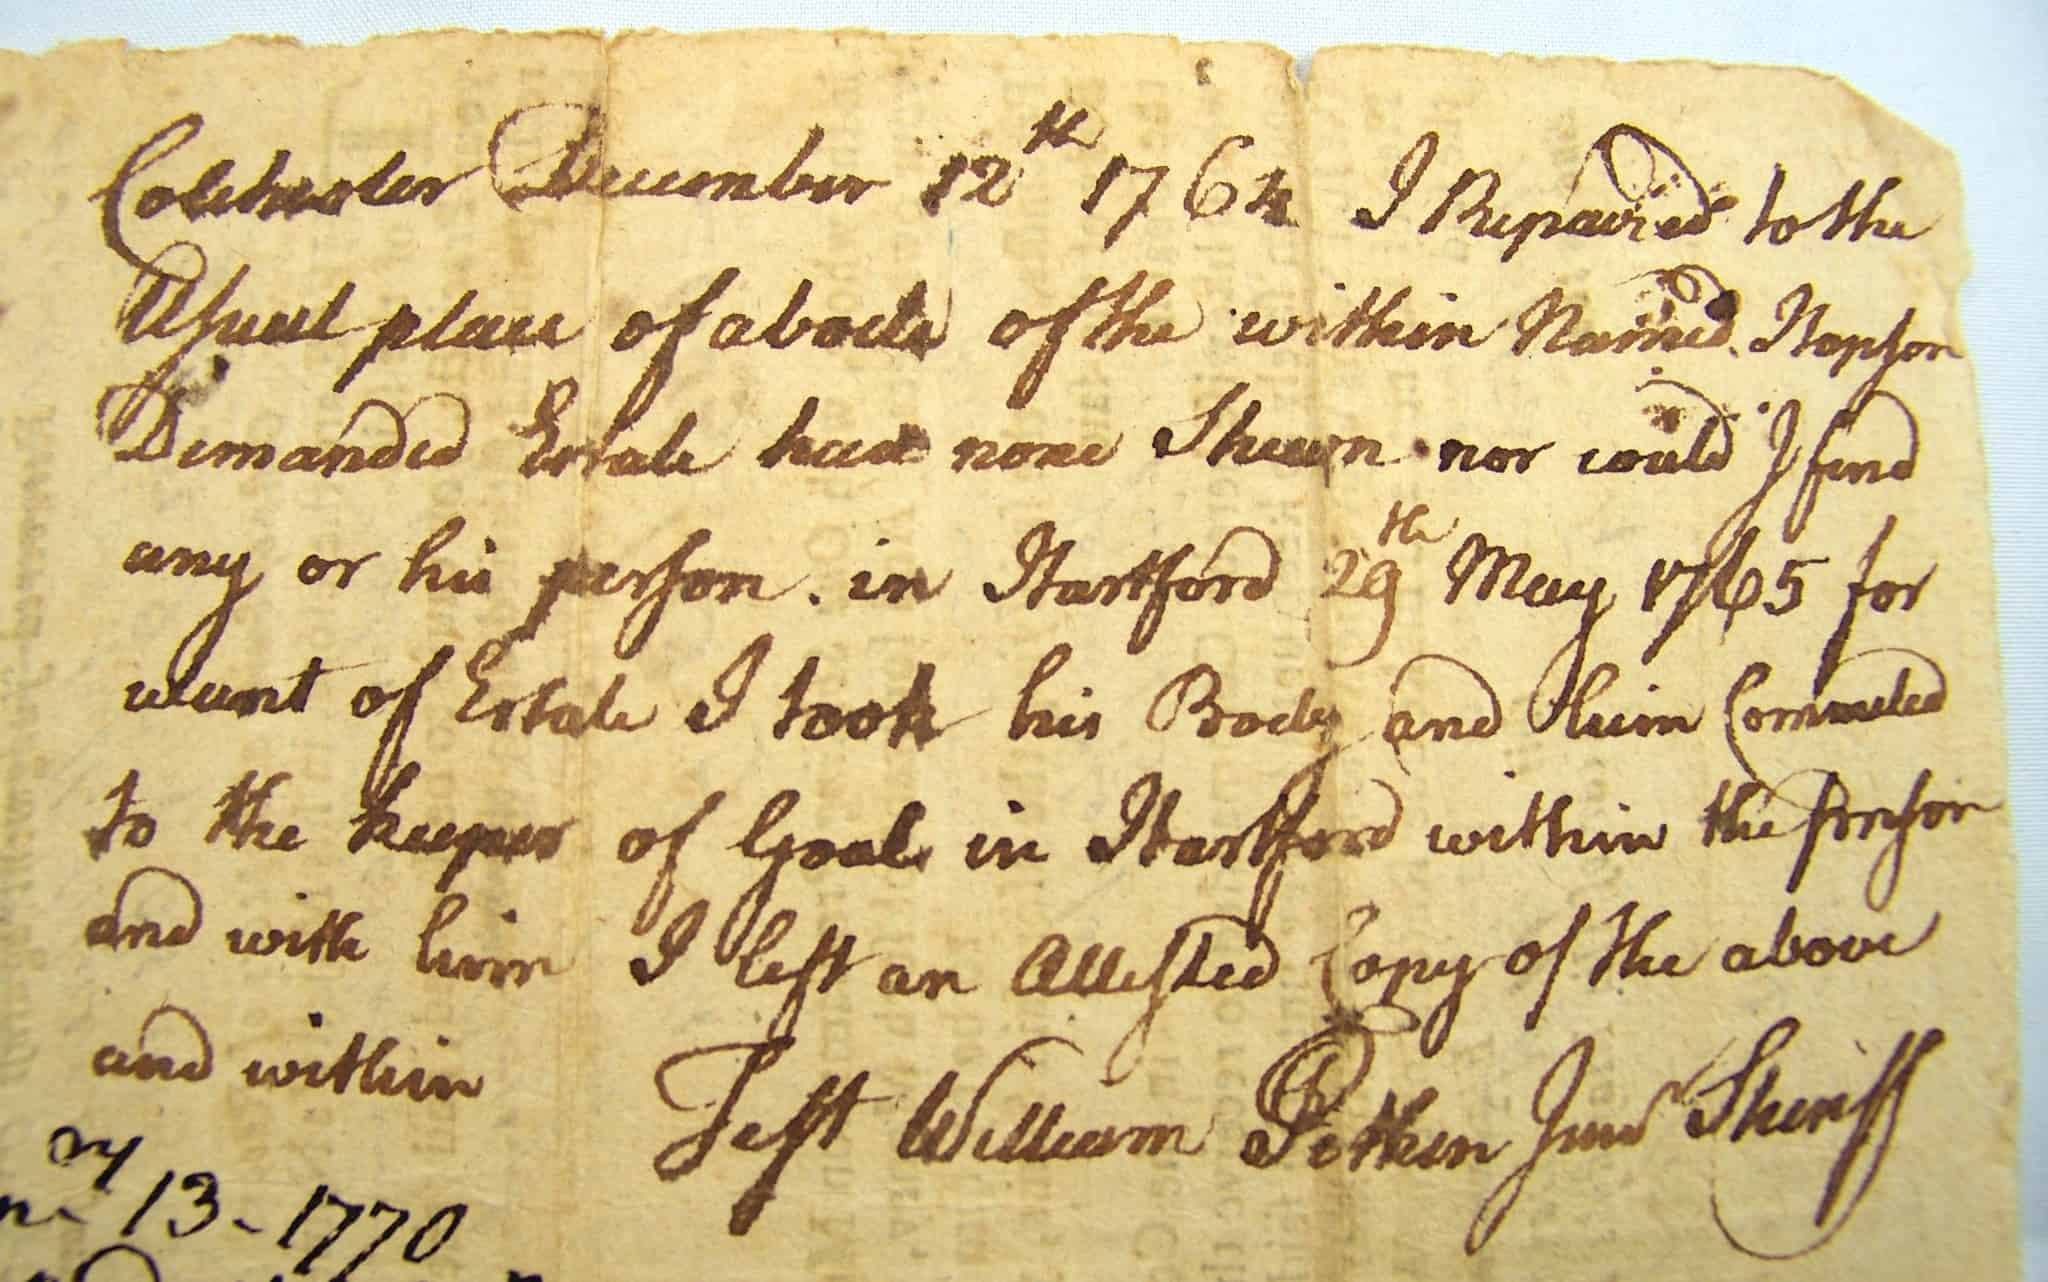 Colchester December 12th 1764 I Repaired to the
Usual place of abode of the within Named Hopson
Demanded Estate had none Shewn nor could I find
any or his person. in Hartford 29th May 1765 for
want of Estate I took his Body and him Commited
to the keeper of Goal in Hartford within the prison
and with him I left an Attested Copy of the above
and within
Test William Pitkin Junr Sheriff
13 - 1770